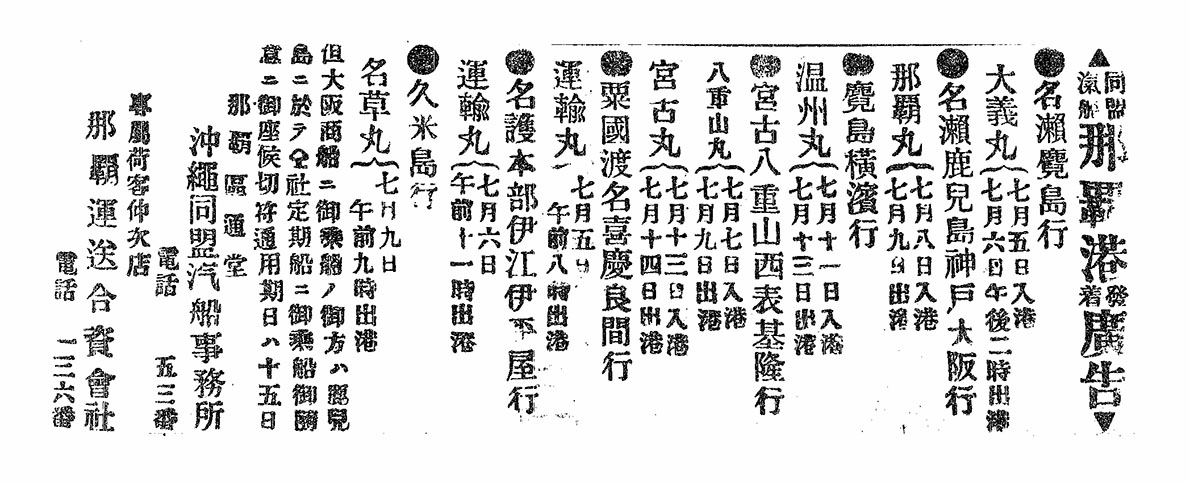 ▲同盟滊船那覇港發着廣告▼
●名瀬麑島行
大義丸 七月五日入港
七月六日午後二時出港
●名瀬鹿兒島神戸大阪行
那覇丸 七月八日入港
七月九日出港
●麑島橫濱行
温州丸 七月十一日入港
七月十三日出港
●宮古八重山西表基隆行
八重山丸 七月七日入港
七月九日出港
宮古丸 七月十三日入港
七月十四日出港
●粟國渡名喜慶良間行
運輸丸 七月五日
午前八時出港
●名護本部伊江伊平屋行
運輸丸 七月六日
午前十一時出港
●久米島行
名草丸 七月九日
午前九時出港
但大阪商船ニ御乘船ノ御方ハ麑兒
島ニ於テ仝社定期船ニ御乘船御隨
意ニ御座候切符通用期日ハ十五日
那覇區通堂
沖繩同盟汽船事務所
電話 五三番
專屬荷客仲次店
那覇運送合資會社
電話 一三六番